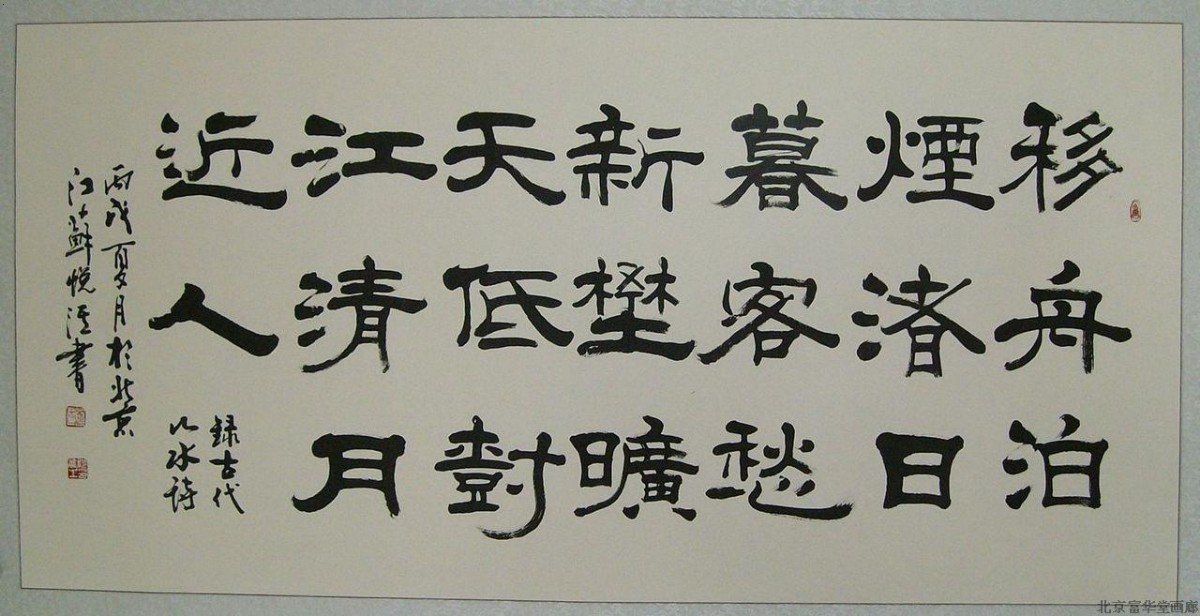 移舟泊
煙渚日
暮客愁
新壄曠
天低尌
江清月
近人
錄古代
山水詩
丙戌夏月於北京
江蘇悅書
北京富华堂画廊